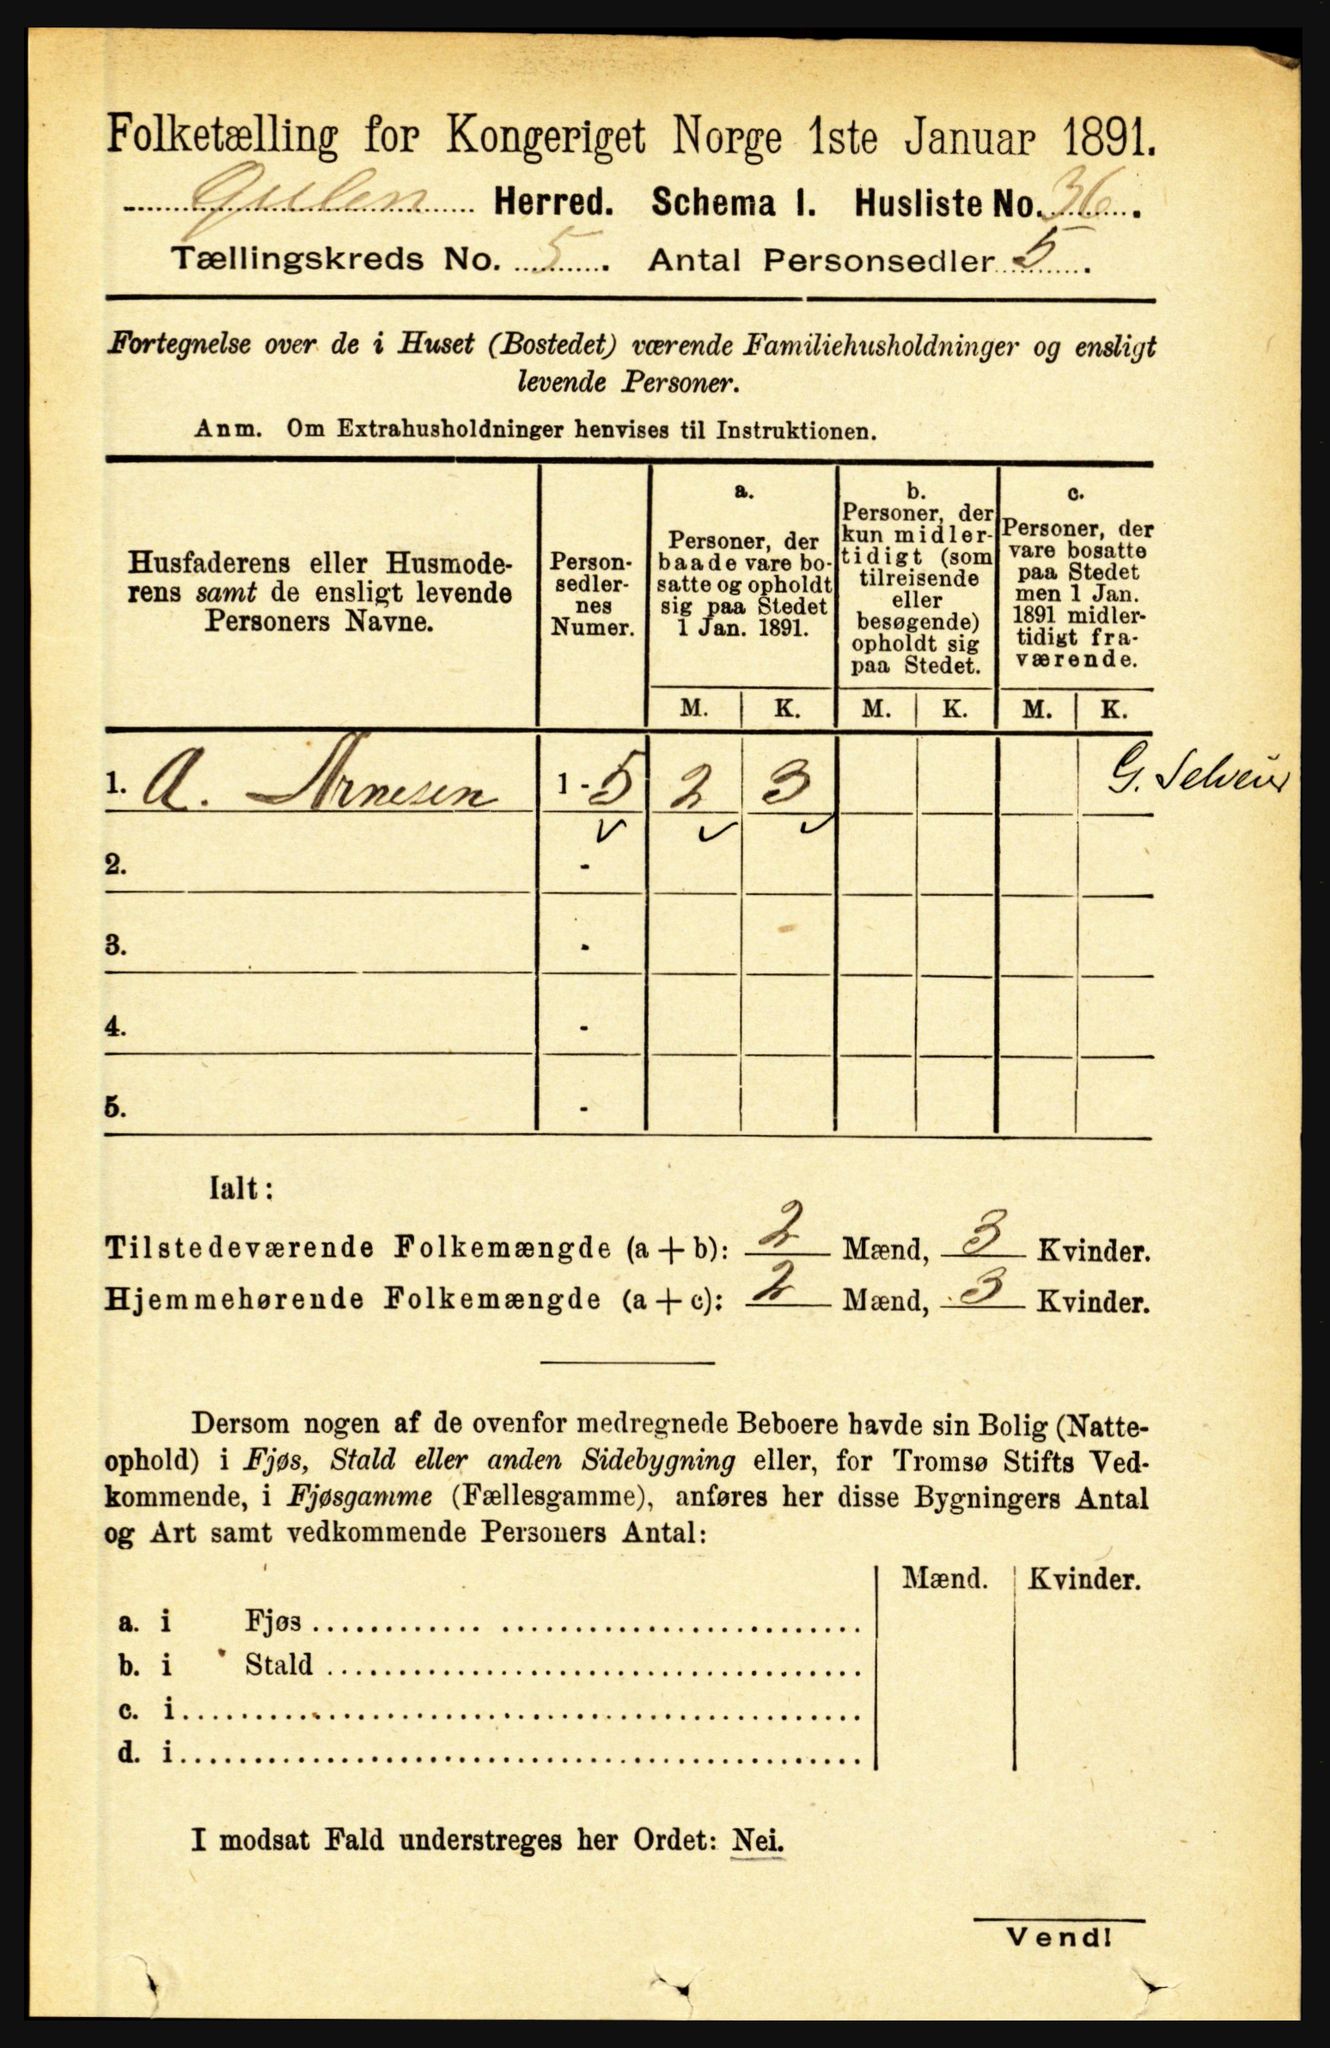 Folketælling for Kongeriget Norge 1ste Januar 1891.
Gulen Herred. Schema I. Husliste No. 36.
Tællingskreds No. 5. Antal Personsedler 5.
Fortegnelse over de i Huset (Bostedet) værende Familiehusholdninger og ensligt
levende Personer.
Anm. Om Extrahusholdninger henvises til Instruktionen.
Husfaderens eller Husmode-
rens samt de ensligt levende
Personers Navne.
Person-
sedler-
nes
Numer.
a.
Personer, der
baade vare bo-
satte og opholdt
sig paa Stedet
1 Jan. 1891.
b.
Personer, der
kun midler-
tidigt (som
tilreisende
eller
besøgende)
opholdt sig
paa Stedet.
c.
Personer, der
vare bosatte
paa Stedet
men 1 Jan.
1891 midler-
tidigt fra-
værende.
M. K. M. K. M. K.
1. A. Arnesen 1 - 5 2 3 G.
2. -
3. -
4. -
5. -
Ialt:
Tilstedeværende Folkemængde (a + b): 2 Mænd, 3 Kvinder.
Hjemmehørende Folkemængde (a + c): 2 Mænd, 3 Kvinder.
Dersom nogen af de ovenfor medregnede Beboere havde sin Bolig (Natte-
ophold) i Fjøs, Stald eller anden Sidebygning eller, for Tromsø Stifts Ved-
kommende, i Fjøsgamme (Fællesgamme), anføres her disse Bygningers Antal
og Art samt vedkommende Personers Antal:
Mænd. Kvinder.
a. i Fjøs
b. i Stald
c. i
d. i
I modsat Fald understreges her Ordet: Nei.
Vend!